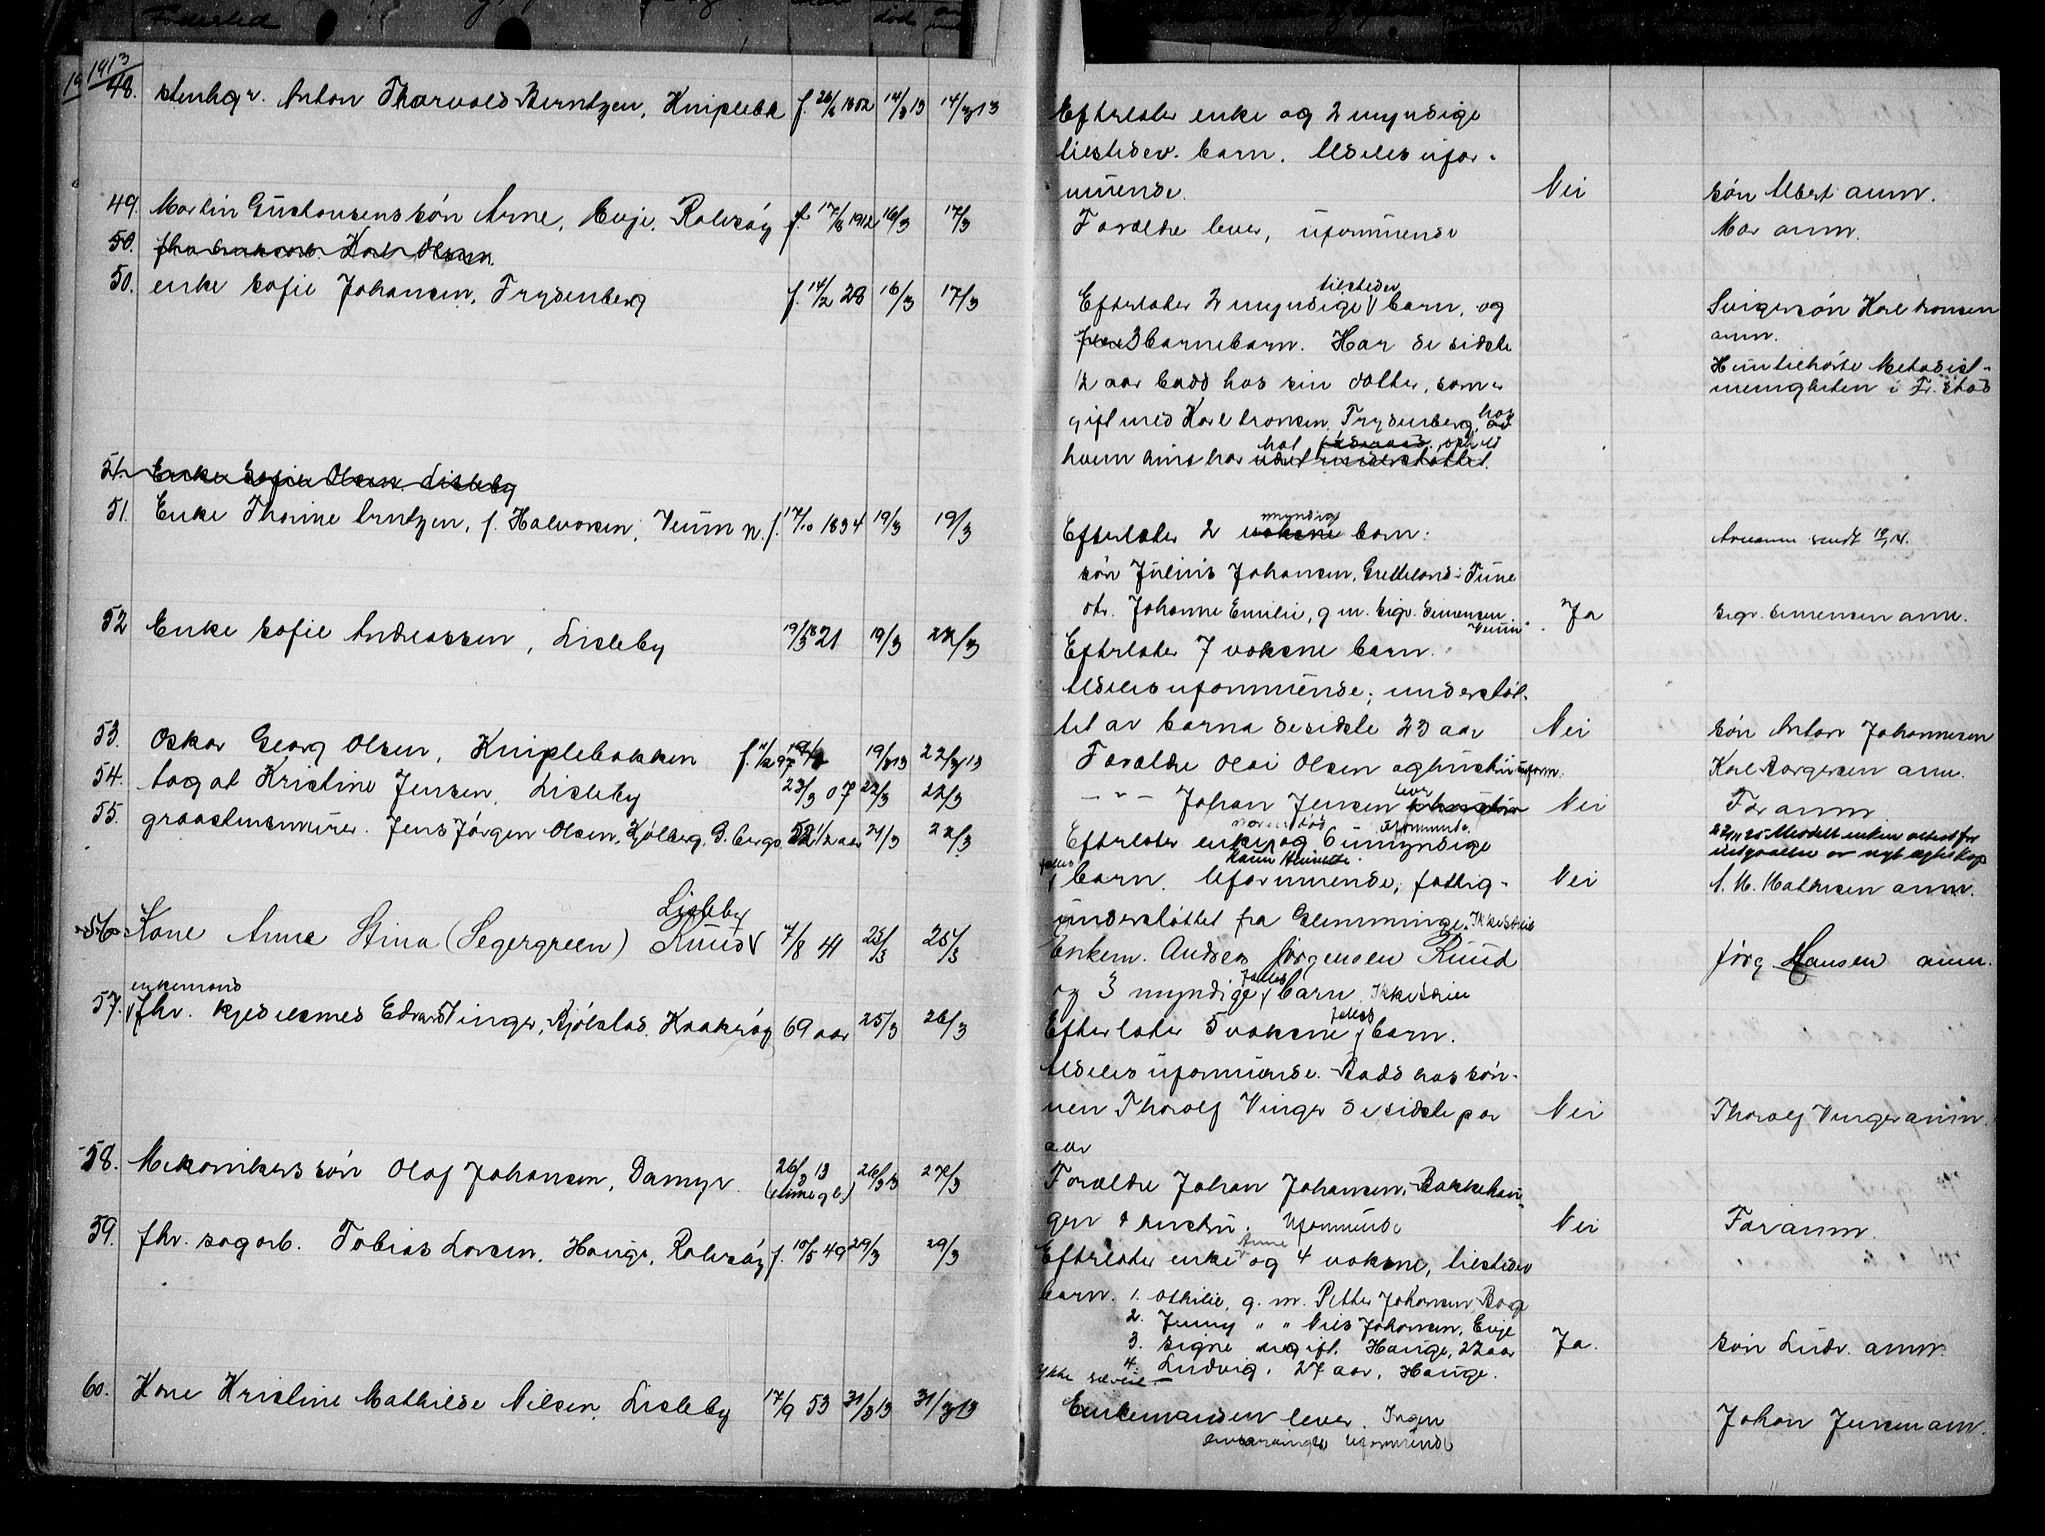 Fødested
død
1913
48. stenhgr. Anton Thorvald Berntzen, Kniplebk f. 26/6 1852 14/3 13 14/3 13
Efterlater enke og 2 myndige
tilstedev. barn. Aldeles ufor-
muende. Nei søn Albert anm.
49. Martin Gustavsens søn Arne, Evje, Rolvsøy f. 17/8 1912 16/3 17/3
Forældre lever, uformuende Mor anm.
50. fhv. Karl Olsen
50. enke Sofie Johansen, Frydenberg f. 14/2 28 16/3 17/3
Efterlater 2 myndige tilstedev barn, og
flere 3 barnebarn. Har de sidste
12 aar bodd hos sin datter, som er
gift med Karl Aronsen, Frydenberg, hos
hvem hun har hat ophold
Svigersøn Karl Aronsen
anm.
Hun tilhørte Metodist-
menigheten i Fr.stad
51. Enke Sofie Olsen Lisleby
51. Enke Thorine Arntzen, f. Halvorsen, Veum n. f. 17/10 1834 19/3 19/3
Efterlater 2 voksne myndige barn:
søn Julius Johansen, Greåkerland i Tune
dtr. Johanne Emilie, g. m. Sigv. Simensen Veum. Ja
sendt
Sigv. Simensen anm.
52 Enke Sofie Andreassen, Lisleby 19/3 1821 19/3 22/3
Efterlater 7 voksne barn.
Aldeles uformuende; understøt-
tet av barna de sidste 23 aar Nei søn Anton Johannesen
53. Oskar Georg Olsen, Kniplebakken 19/3 13 22/3 13
Forældre Olai Olsen og hustru uform. Karl Borgersen anm.
54. Dagot Kristine Jensen, Lisleby 23/3 07 22/3 22/3
— " — Johan Jensen lever Nei Far anm
55. graastensmurer. Jens Jørgen Olsen, Kjølberg, G. berge 52 1/2 aar 21/3 22/3
Efterlater enke og 6 umyndige
Karen
fælles barn. Uformuende, fattig- Nei
understøttet fra Glemminge. Ikke skifte
Meddelt enken attest for
indgaaelse av nyt egteskap
A. M. Mathisen anm.
56 Kone Anna Stina (Segergreen) Ruud Lisleby 7/8 41 23/3 25/3
Enkem. Anders Jørgensen Ruud
og 3 myndige fælles barn. Ikke skifte
Jørg Hansen anm.
57. enkemand fhv. kjedelsmed Edvard Vinger, Bjølstad, Kraakerøy 69 aar 25/3 26/3
Efterlater 5 voksne fælles barn.
Aldeles uformuende. Bodd hos søn-
nen Thorolf Vinger de sidste par Nei Thorolf Vinger anm.
aar
58. Mekanikers søn Olaf Johansen, Damyr. 26/3 13 (1 time gl.) 26/3 13 27/3
Forældre Johan Johansen, Bakkehau-
gen & hustru. Uformuende Nei Far anm.
59. fhv. sagarb. Tobias Larsen, Hauge, Rolvsøy f. 10/5 49 29/3 29/3
Efterlater enke Anne og 4 voksne, tilstedev
barn. 1. Othilie, g. m. Petter Johansen Borge
2. Jenny " " Nils Johansen, Evje
3. Signe ugift. Hauge, 22 aar Ja. søn Ludv. anm.
4. Ludvig, 27 aar, Hauge.
60. Kone Kristine Mathilde Nilsen, Lisleby 17/9 53 31/3 13 31/3 13
Enkemanden lever. Ingen
livsarvinger uformuende
Johan Jensen anm.